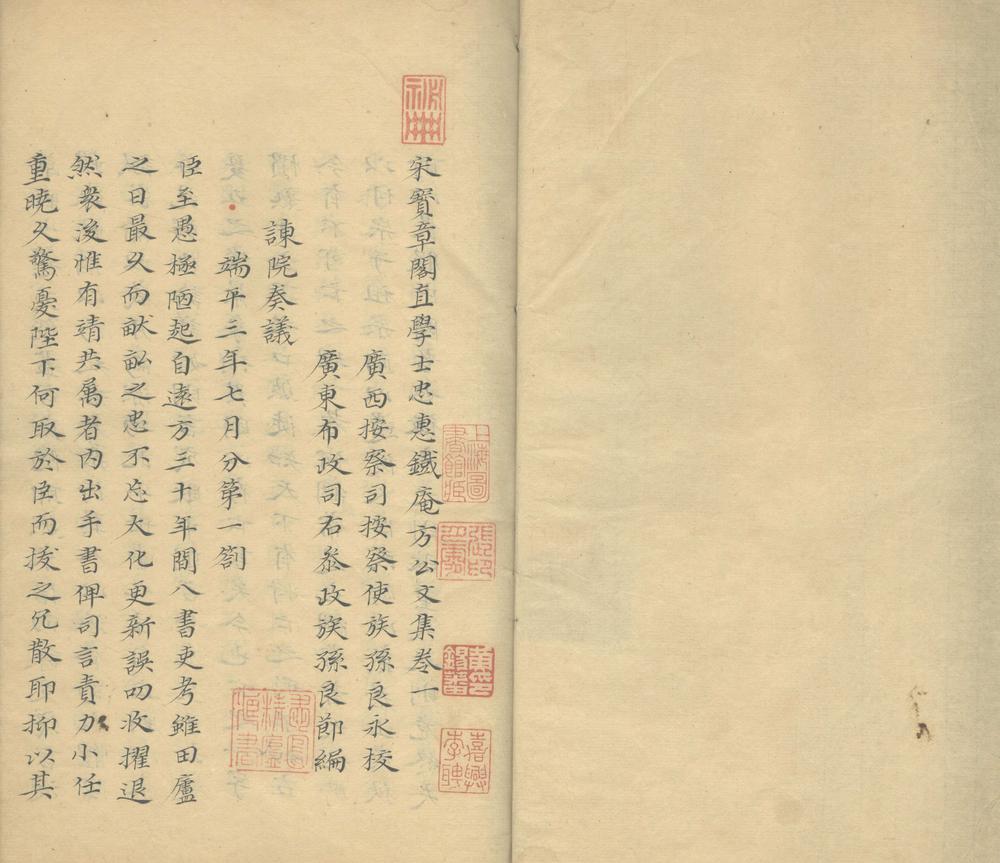 宋寶章閣直學士忠惠鐵庵方公文集卷一
廣西按察司按察使族孫良永校
廣東布政司右叅政族孫良節編
諫院奏議
端平三年七月分第一劄
臣至愚極陋起自遠方三十年間八書吏考雖田廬
之日最久而畎畝之忠不忘大化更新誤叨收擢退
然衆後惟有靖共属者内出手書俾司言責力小任
重曉夕驚憂陛下何取於臣而拔之冗散耶抑以其
上海圖書館藏
嘉興李聘